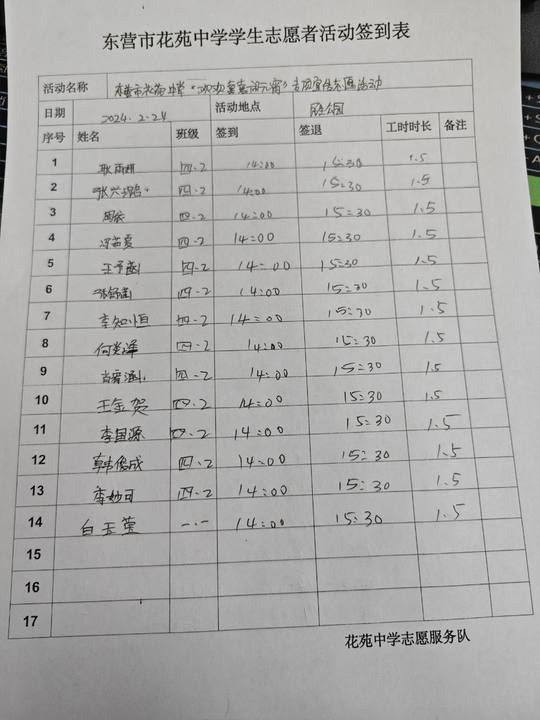 东营市花苑中学学生志愿者活动签到表
活动名称 东营市花苑中学
日期 2024.2.24 活动地点
序号 姓名 班级 签到 签退 工时时长 备注
1 四.2 14:00 15:30 1.5
2 四.2 14:00 15:30 1.5
3 四.2 14:00 15:30 1.5
4 四.2 14:00 15:30 1.5
5 王予涵 四.2 14:00 15:30 1.5
6 四.2 14:00 15:30 1.5
7 李知恒 四.2 14:00 15:30 1.5
8 四.2 14:00 15:30 1.5
9 四.2 14:00 15:30 1.5
10 王金贺 四.2 14:00 15:30 1.5
11 李国源 四.2 14:00 15:30 1.5
12 韩俊成 四.2 14:00 15:30 1.5
13 李妙可 四.2 14:00 15:30 1.5
14 白玉莹 一.一 14:00 15:30 1.5
15
16
17
花苑中学志愿服务队